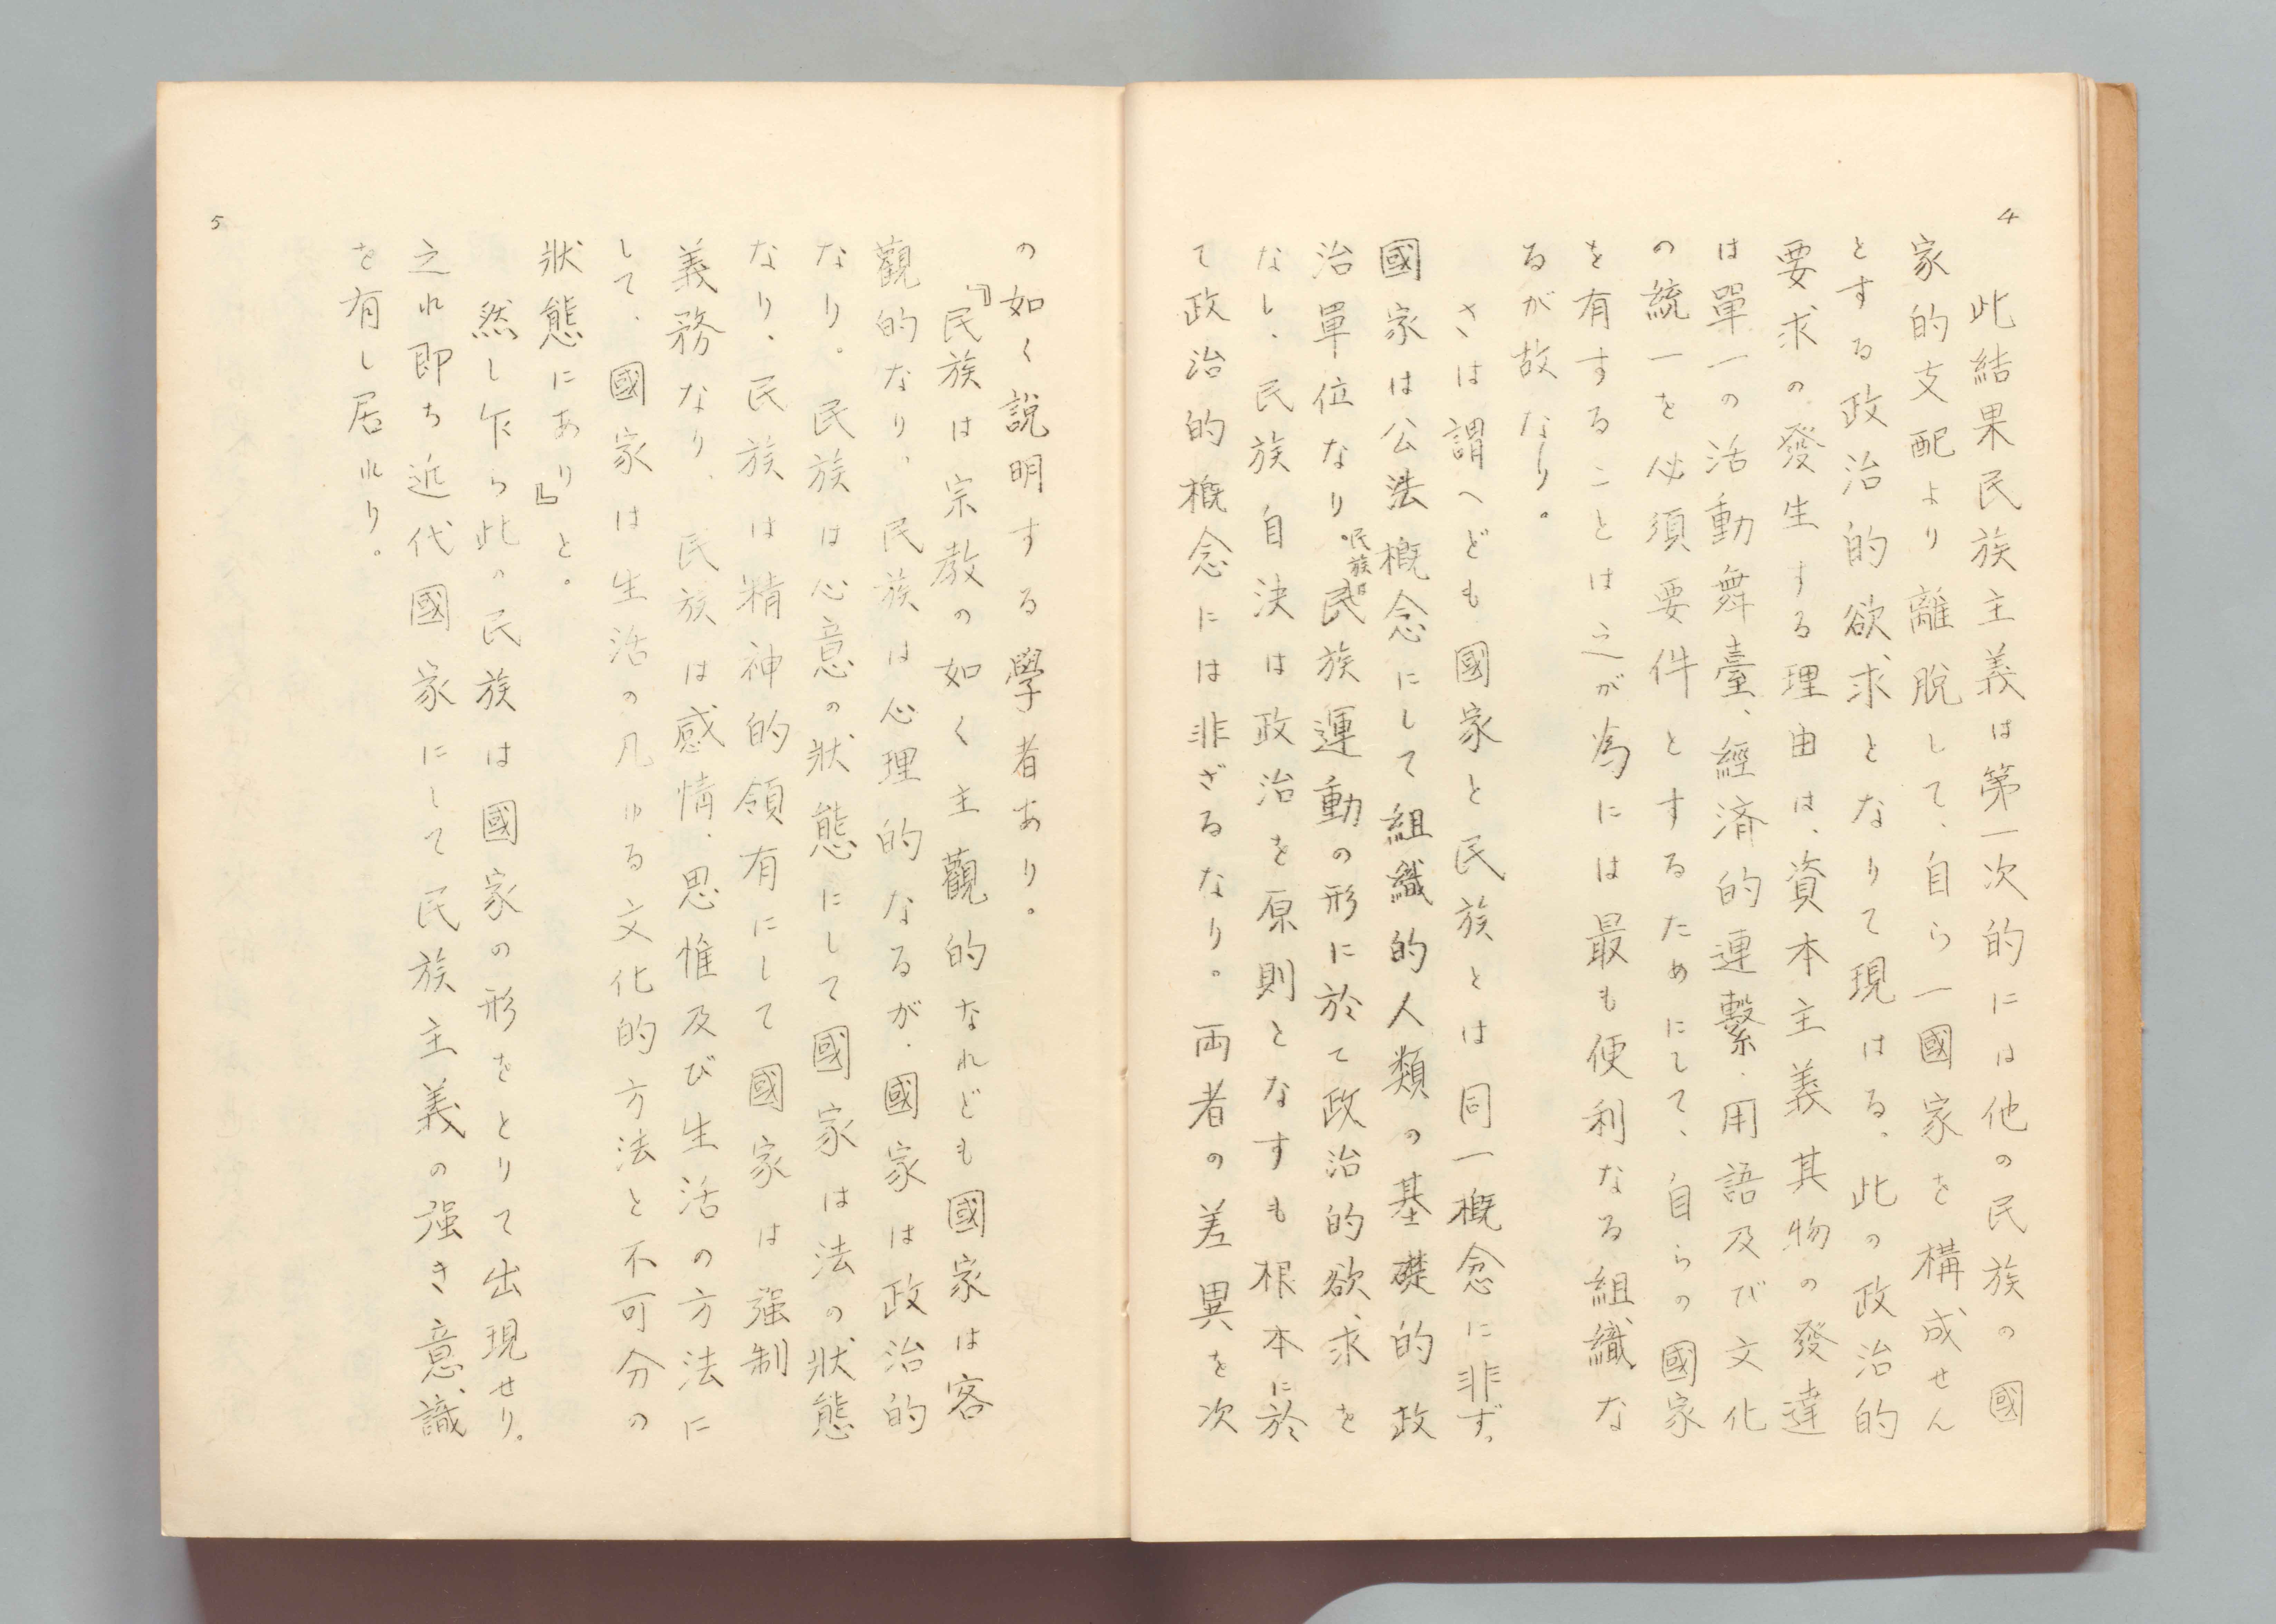 4
此結果民族主義は第一次的には他の民族の國
家的支配より離脱して、自ら一國家を構成せん
とする政治的欲求となりて現はる、此の政治的
要求の發生する理由は、資本主義其物の發達
は單一の活動舞臺、經済的連繫、用語及び文化
の統一を必須要件とするためにして、自らの國家
を有することは之が為には最も便利なる組織な
るが故なり。
さは謂へども國家と民族とは同一概念に非ず。
國家は公法概念にして組織的人類の基礎的政
治單位なり民族は民族運動の形に於て政治的欲求を
なし、民族自決は政治を原則となすも根本に於
て政治的概念には非ざるなり。両者の差異を次
の如く説明する學者あり。
『民族は宗教の如く主觀的なれども國家は客
觀的なり、民族は心理的なるが、國家は政治的
なり。民族は心意の狀態にして國家は法の狀態
なり、民族は精神的領有にして國家は强制
義務なり、民族は感情、思惟及び生活の方法に
して、國家は生活の凡ゆる文化的方法と不可分の
狀態にあり』と。
然し乍ら此の民族は國家の形をとりて出現せり。
之れ即ち近代國家にして民族主義の强き意識
を有し居れり。
5